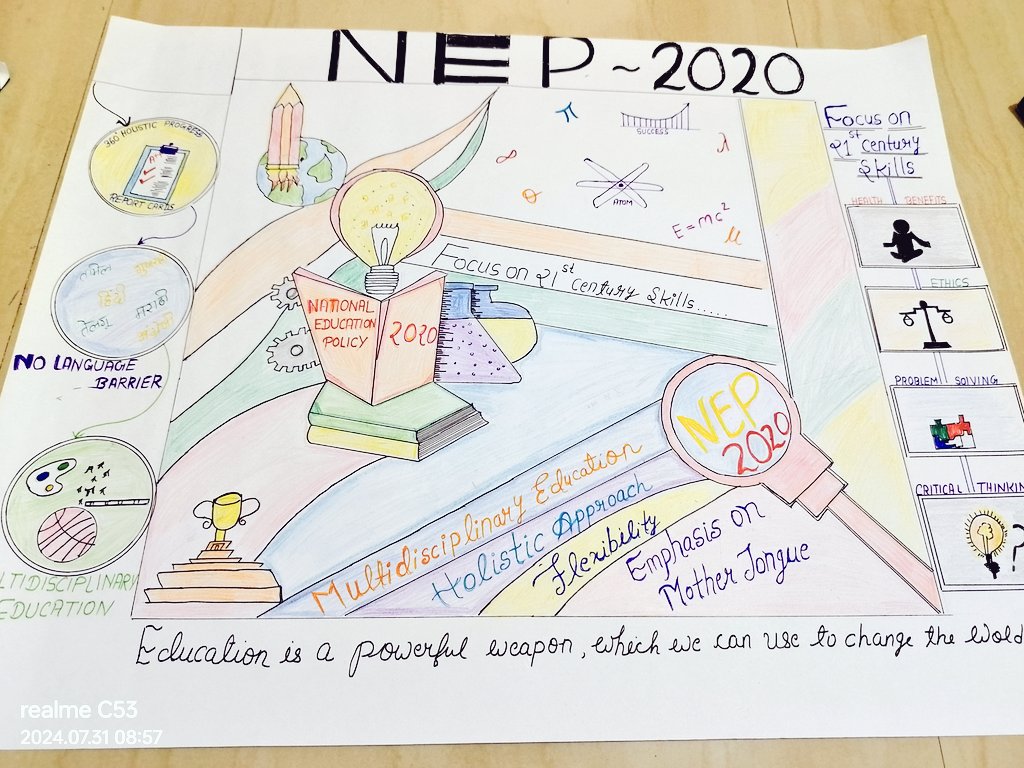 NEP ~ 2020
360° HOLISTIC PROGRESS
REPORT CARDS
तमिल
हिंदी
मराठी
NO LANGUAGE
BARRIER
LTIDISCIPLINARY
EDUCATION
π
SUCCESS
λ
∞
ATOM
E=mc²
μ
Focus on 21st Century Skills.....
NATIONAL
EDUCATION
POLICY
2020
NEP
2020
Multidisciplinary Education
Holistic Approach
Flexibility
Emphasis on
Mother Tongue
Focus on
21st Century
Skills
HEALTH BENEFITS
ETHICS
PROBLEM SOLVING
CRITICAL THINKIN
?
Education is a powerful weapon, which we can use to change the Wold
realme C53
2024.07.31 08:57